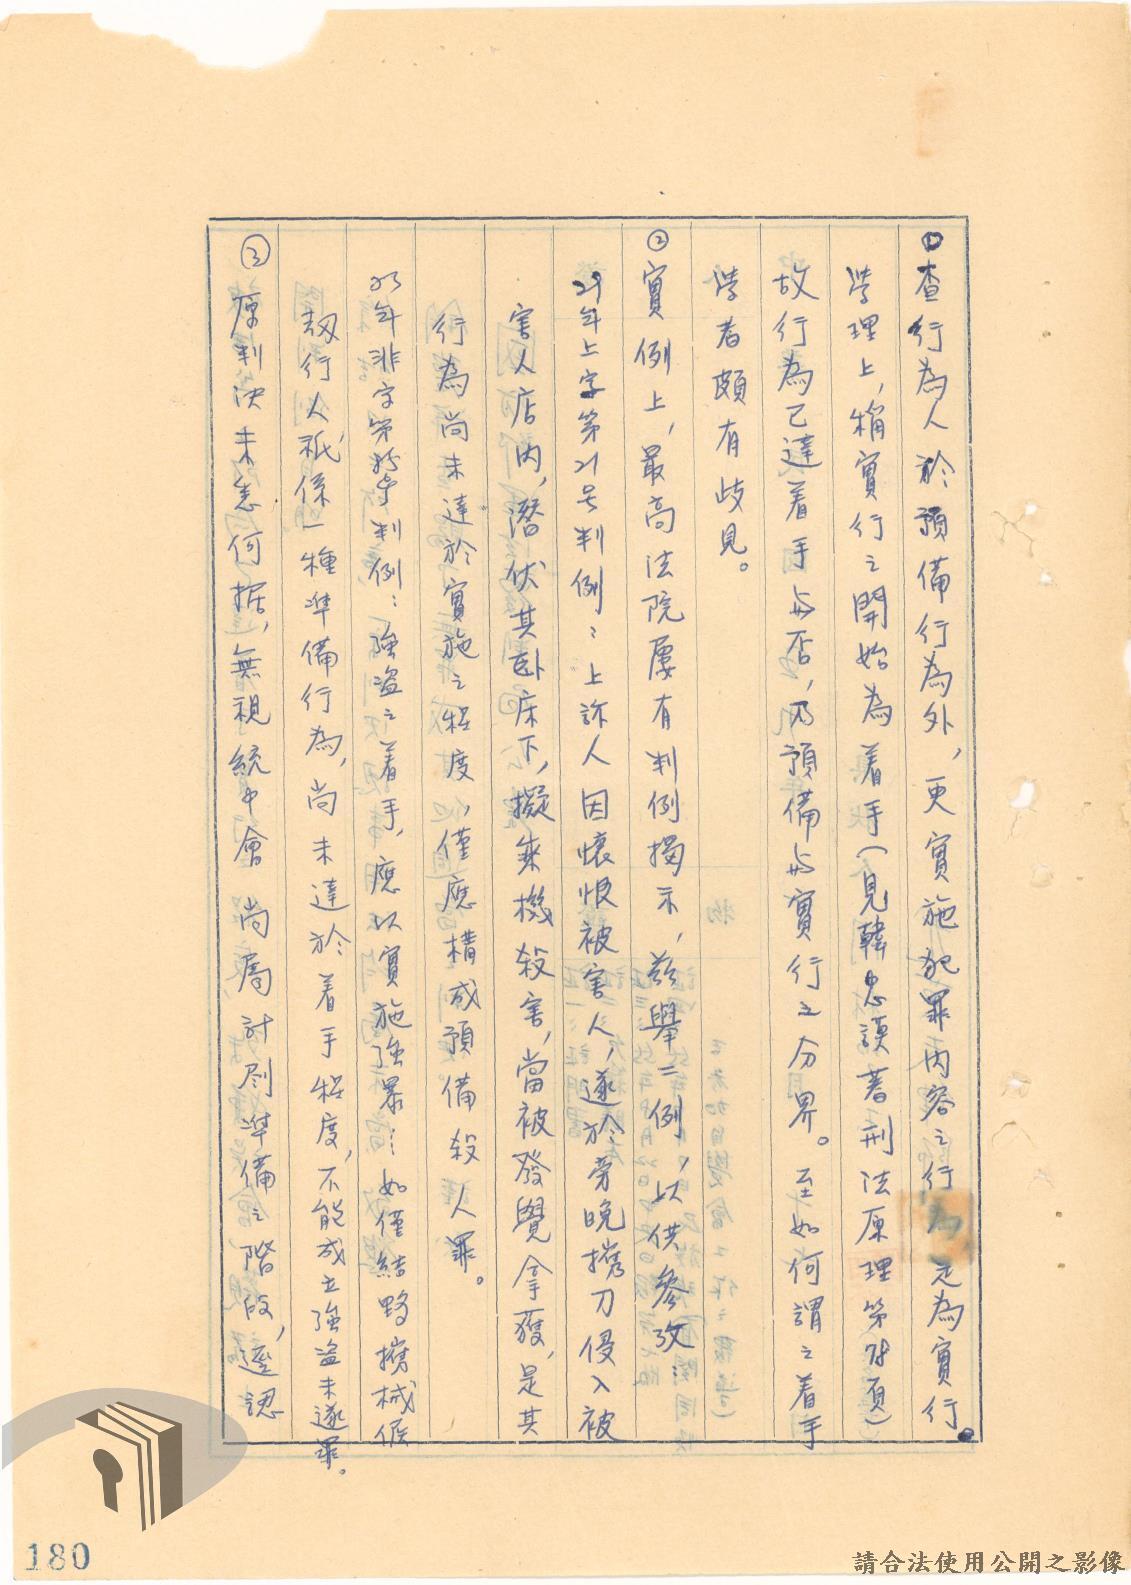 ①查行為人於預備行為外，更實施犯罪內容之行為元為實行。
學理上，稱實行之開始為着手（見韓忠謨著刑法原理第 頁）
故行為已達着手與否，乃預備與實行之分界。至如何謂之着手
學者頗有歧見。
②實例上，最高法院屢有判例揭示，茲舉二例，以供參攷：
29年上字第21号判例：上訴人因懷恨被害人，遂於旁晚携刀侵入被
害人店內，潛伏其卧床下，擬乘機殺害，當被發覺拿獲，是其
行為尚未達於實施之程度，僅應構成預備殺人罪。
25年非字第 号判例：強盜之着手，應以實施強暴：如僅結夥携械候
刼行人祇係一種準備行為，尚未達於着手程度，不能成立強盜未遂罪。
③原判決未悉何据，無視統中會尚屬計劃準備之階段，逕認
180
請合法使用公開之影像